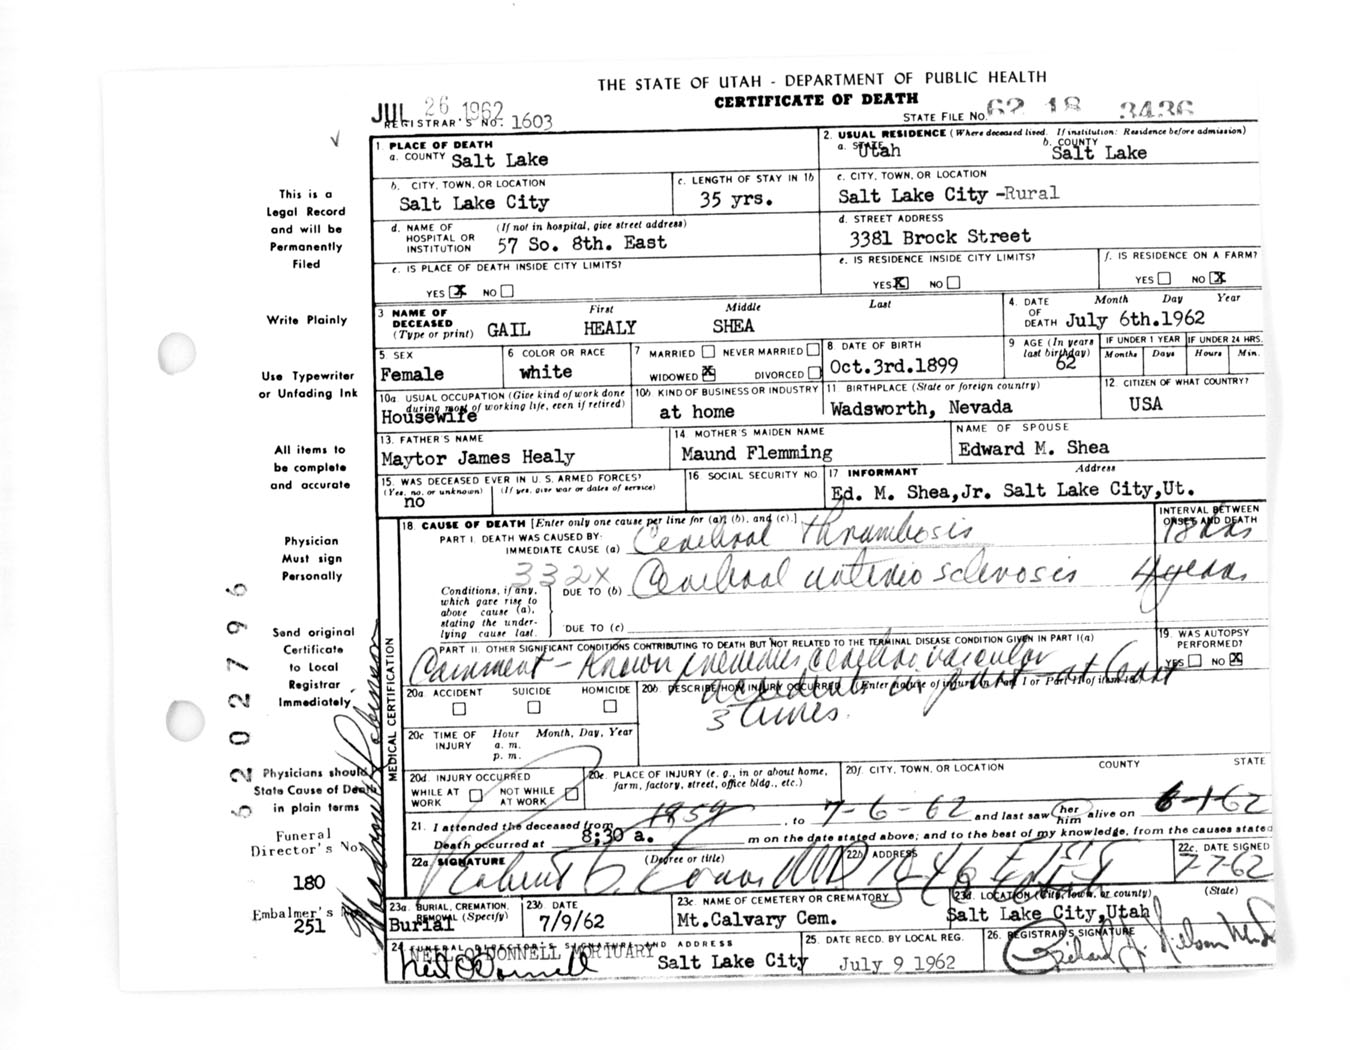 THE STATE OF UTAH - DEPARTMENT OF PUBLIC HEALTH
CERTIFICATE OF DEATH
JUL 26 1962
REGISTRAR'S NO. 1603
STATE FILE No. 62 18 3436
1. PLACE OF DEATH
a. COUNTY Salt Lake
2. USUAL RESIDENCE (Where deceased lived. If institution: Residence before admission)
a. STATE Utah b. COUNTY Salt Lake
b. CITY, TOWN, OR LOCATION Salt Lake City
c. LENGTH OF STAY IN 1b 35 yrs.
c. CITY, TOWN, OR LOCATION
Salt Lake City -Rural
d. NAME OF HOSPITAL OR INSTITUTION (If not in hospital, give street address)
57 So. 8th. East
d. STREET ADDRESS
3381 Brock Street
e. IS PLACE OF DEATH INSIDE CITY LIMITS?
YES X NO
e. IS RESIDENCE INSIDE CITY LIMITS?
YES X NO
f. IS RESIDENCE ON A FARM?
YES NO X
3 NAME OF DECEASED (Type or print) First Middle Last
GAIL HEALY SHEA
4. DATE OF DEATH Month Day Year
July 6th.1962
5 SEX Female
6 COLOR OR RACE white
7 MARRIED NEVER MARRIED
WIDOWED X DIVORCED
8. DATE OF BIRTH
Oct.3rd.1899
9 AGE (In years last birthday) 62
IF UNDER 1 YEAR Months Days
IF UNDER 24 HRS. Hours Min.
10a. USUAL OCCUPATION (Give kind of work done during most of working life, even if retired)
Housewife
10b. KIND OF BUSINESS OR INDUSTRY
at home
11 BIRTHPLACE (State or foreign country)
Wadsworth, Nevada
12. CITIZEN OF WHAT COUNTRY?
USA
13. FATHER'S NAME
Maytor James Healy
14 MOTHER'S MAIDEN NAME
Maund Flemming
NAME OF SPOUSE
Edward M. Shea
15. WAS DECEASED EVER IN U. S. ARMED FORCES?
(Yes, no, or unknown) (If yes, give war or dates of service)
no
16 SOCIAL SECURITY NO
17 INFORMANT Address
Ed. M. Shea,Jr. Salt Lake City,Ut.
MEDICAL CERTIFICATION
18. CAUSE OF DEATH [Enter only one cause per line for (a), (b), and (c).]
INTERVAL BETWEEN ONSET AND DEATH
PART I. DEATH WAS CAUSED BY:
IMMEDIATE CAUSE (a) Cerebral thrombosis
332X
Conditions, if any, which gave rise to above cause (a), stating the underlying cause last.
DUE TO (b) Cerebral arteriosclerosis 4 years
DUE TO (c)
PART II. OTHER SIGNIFICANT CONDITIONS CONTRIBUTING TO DEATH BUT NOT RELATED TO THE TERMINAL DISEASE CONDITION GIVEN IN PART I(a)
Comment - Known previous cerebrovascular
accidents in past - at least
3 times.
19. WAS AUTOPSY PERFORMED?
YES NO X
20a. ACCIDENT SUICIDE HOMICIDE
20b. DESCRIBE HOW INJURY OCCURRED (Enter nature of injury in Part I or Part II of item 18.)
20c TIME OF INJURY Hour Month, Day, Year
a. m.
p. m.
20d. INJURY OCCURRED
WHILE AT WORK NOT WHILE AT WORK
20e. PLACE OF INJURY (e. g., in or about home, farm, factory, street, office bldg., etc.)
20f. CITY, TOWN, OR LOCATION COUNTY STATE
21. I attended the deceased from 1959, to 7-6-62 and last saw her him alive on 6-1-62
Death occurred at 8:30 a. m on the date stated above; and to the best of my knowledge, from the causes stated
22a. SIGNATURE (Degree or title)
22b ADDRESS
22c. DATE SIGNED
7-7-62
23a. BURIAL, CREMATION, REMOVAL (Specify)
Burial
23b DATE
7/9/62
23c. NAME OF CEMETERY OR CREMATORY
Mt.Calvary Cem.
23d. LOCATION (City, town, or county) (State)
Salt Lake City,Utah
24 FUNERAL DIRECTOR'S SIGNATURE AND ADDRESS
NEIL O'DONNELL MORTUARY
Neil O'Donnell
Salt Lake City
25. DATE RECD. BY LOCAL REG.
July 9 1962
26. REGISTRAR'S SIGNATURE
This is a
Legal Record
and will be
Permanently
Filed
Write Plainly
Use Typewriter
or Unfading Ink
All items to
be complete
and accurate
Physician
Must sign
Personally
Send original
Certificate
to Local
Registrar
Immediately
Physicians should
State Cause of Death
in plain terms
Funeral
Director's No.
180
Embalmer's No.
251
6202796